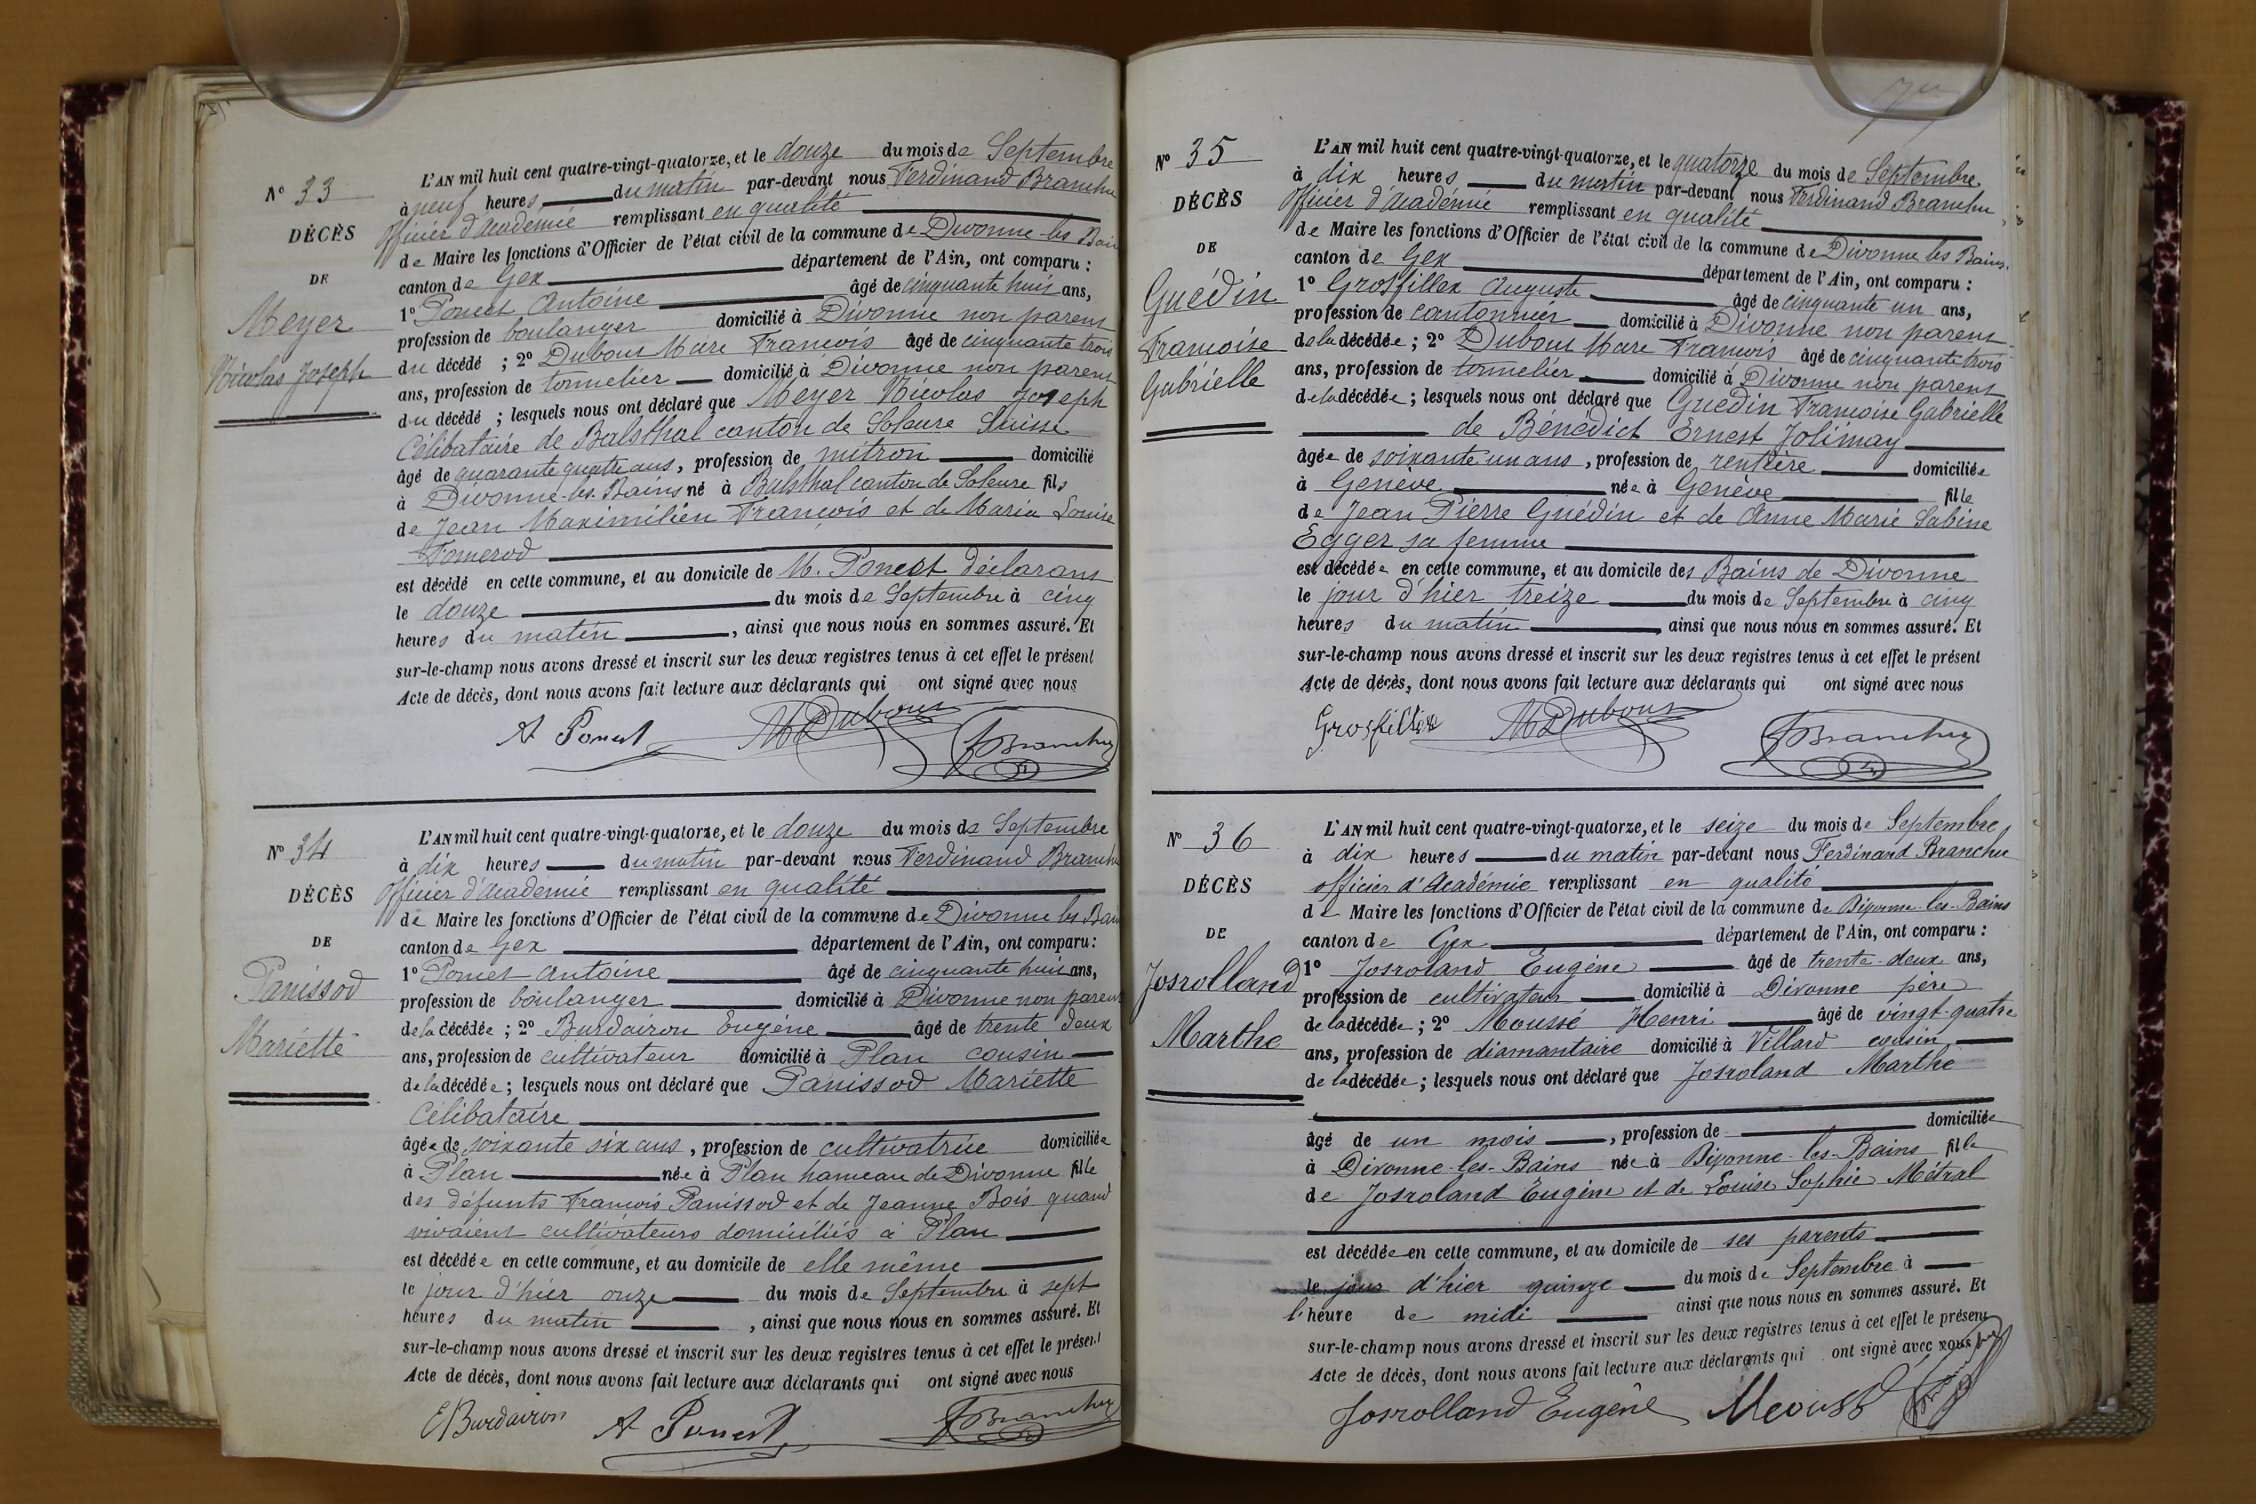 N° 33
DÉCÈS
DE
Meyer
Nicolas Joseph
L'AN mil huit cent quatre-vingt-quatorze, et le douze du mois de Septembre
à neuf heures du matin par-devant nous Ferdinand Branchu
officier d'Académie remplissant en qualité
de Maire les fonctions d'Officier de l'état civil de la commune de Divonne-les-Bains
canton de Gex département de l'Ain, ont comparu :
1° Poncet Antoine âgé de cinquante huit ans,
profession de boulanger domicilié à Divonne non parent
du décédé ; 2° Dubout Marc François âgé de cinquante trois
ans, profession de tonnelier domicilié à Divonne non parent
du décédé ; lesquels nous ont déclaré que Meyer Nicolas Joseph
Célibataire de Balsthal canton de Soleure Suisse
âgé de quarante quatre ans, profession de mitron domicilié
à Divonne-les-Bains né à Balsthal canton de Soleure fils
de Jean Maximilien François et de Maria Louise
Fomerod
est décédé en cette commune, et au domicile de M. Poncet déclarant
le douze du mois de Septembre à cinq
heures du matin, ainsi que nous nous en sommes assuré. Et
sur-le-champ nous avons dressé et inscrit sur les deux registres tenus à cet effet le présent
Acte de décès, dont nous avons fait lecture aux déclarants qui ont signé avec nous
A Poncet MDubout FBranchu
N° 34
DÉCÈS
DE
Panissod
Mariette
L'AN mil huit cent quatre-vingt-quatorze, et le douze du mois de Septembre
à dix heures du matin par-devant nous Ferdinand Branchu
Officier d'Académie remplissant en qualité
de Maire les fonctions d'Officier de l'état civil de la commune de Divonne les Bains
canton de Gex département de l'Ain, ont comparu :
1° Poncet Antoine âgé de cinquante huit ans,
profession de boulanger domicilié à Divonne non parent
de la décédée ; 2° Burdairon Eugène âgé de trente deux
ans, profession de cultivateur domicilié à Plan cousin
de la décédée ; lesquels nous ont déclaré que Panissod Mariette
Célibataire
âgée de soixante six ans, profession de cultivatrice domiciliée
à Plan née à Plan hameau de Divonne fille
des défunts François Panissod et de Jeanne Bois quand
vivaient cultivateurs domiciliés à Plan
est décédée en cette commune, et au domicile de elle même
le jour d'hier onze du mois de Septembre à sept
heures du matin, ainsi que nous nous en sommes assuré. Et
sur-le-champ nous avons dressé et inscrit sur les deux registres tenus à cet effet le présent
Acte de décès, dont nous avons fait lecture aux déclarants qui ont signé avec nous
E Burdairon A Poncet FBranchu
N° 35
DÉCÈS
DE
Guédin
Françoise
Gabrielle
L'AN mil huit cent quatre-vingt-quatorze, et le quatorze du mois de Septembre
à dix heures du matin par-devant nous Ferdinand Branchu
Officier d'Académie remplissant en qualité
de Maire les fonctions d'Officier de l'état civil de la commune de Divonne les Bains
canton de Gex département de l'Ain, ont comparu :
1° Grosfillex Auguste âgé de cinquante un ans,
profession de cantonnier domicilié à Divonne non parent
de la décédée ; 2° Dubout Marc François âgé de cinquante trois
ans, profession de tonnelier domicilié à Divonne non parent
de la décédée ; lesquels nous ont déclaré que Guédin Françoise Gabrielle
de Bénédict Ernest Jolimay
âgée de soixante un ans, profession de rentière domiciliée
à Genève née à Genève fille
de Jean Pierre Guédin et de Anne Marie Sabine
Egger sa femme
est décédée en cette commune, et au domicile des Bains de Divonne
le jour d'hier treize du mois de Septembre à cinq
heures du matin, ainsi que nous nous en sommes assuré. Et
sur-le-champ nous avons dressé et inscrit sur les deux registres tenus à cet effet le présent
Acte de décès, dont nous avons fait lecture aux déclarants qui ont signé avec nous
Grosfillex MDubout FBranchu
N° 36
DÉCÈS
DE
Josrolland
Marthe
L'AN mil huit cent quatre-vingt-quatorze, et le seize du mois de Septembre
à dix heures du matin par-devant nous Ferdinand Branchu
officier d'Académie remplissant en qualité
de Maire les fonctions d'Officier de l'état civil de la commune de Divonne-les-Bains
canton de Gex département de l'Ain, ont comparu :
1° Josroland Eugène âgé de trente-deux ans,
profession de cultivateur domicilié à Divonne père
de la décédée ; 2° Moussé Henri âgé de vingt-quatre
ans, profession de diamantaire domicilié à Villard cousin
de la décédée ; lesquels nous ont déclaré que Josroland Marthe
âgé de un mois, profession de domiciliée
à Divonne-les-Bains née à Divonne-les-Bains fille
de Josroland Eugène et de Louise Sophie Métral
est décédée en cette commune, et au domicile de ses parents
le jour d'hier quinze du mois de Septembre à
l'heure de midi ainsi que nous nous en sommes assuré. Et
sur-le-champ nous avons dressé et inscrit sur les deux registres tenus à cet effet le présent
Acte de décès, dont nous avons fait lecture aux déclarants qui ont signé avec nous
Josrolland Eugêne Moussé